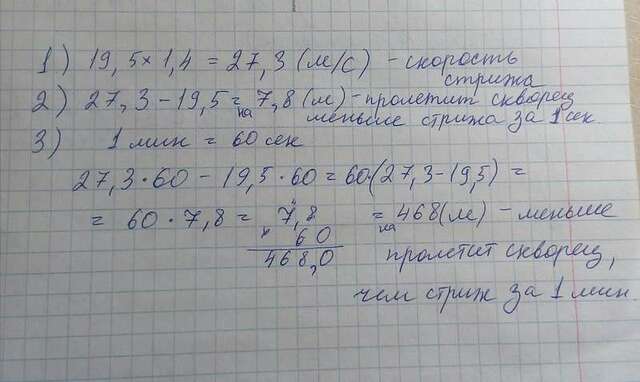 1) 19,5 × 1,4 = 27,3 (м/с) - скорость
стрижа
2) 27,3 - 19,5 = на 7,8 (м) - пролетит скворец
меньше стрижа за 1 сек
3) 1 мин = 60 сек
27,3 · 60 - 19,5 · 60 = 60·(27,3 - 19,5) =
= 60 · 7,8 = 7,8 = на 468 (м) - меньше
× 60
468,0 пролетит скворец,
чем стриж за 1 мин